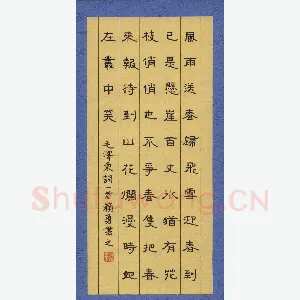 風雨送春歸飛雪迎春到
已是懸崖百丈冰猶有花
枝俏俏也不爭春隻把春
來報待到山花爛漫時她
在叢中笑
毛澤東詞一首